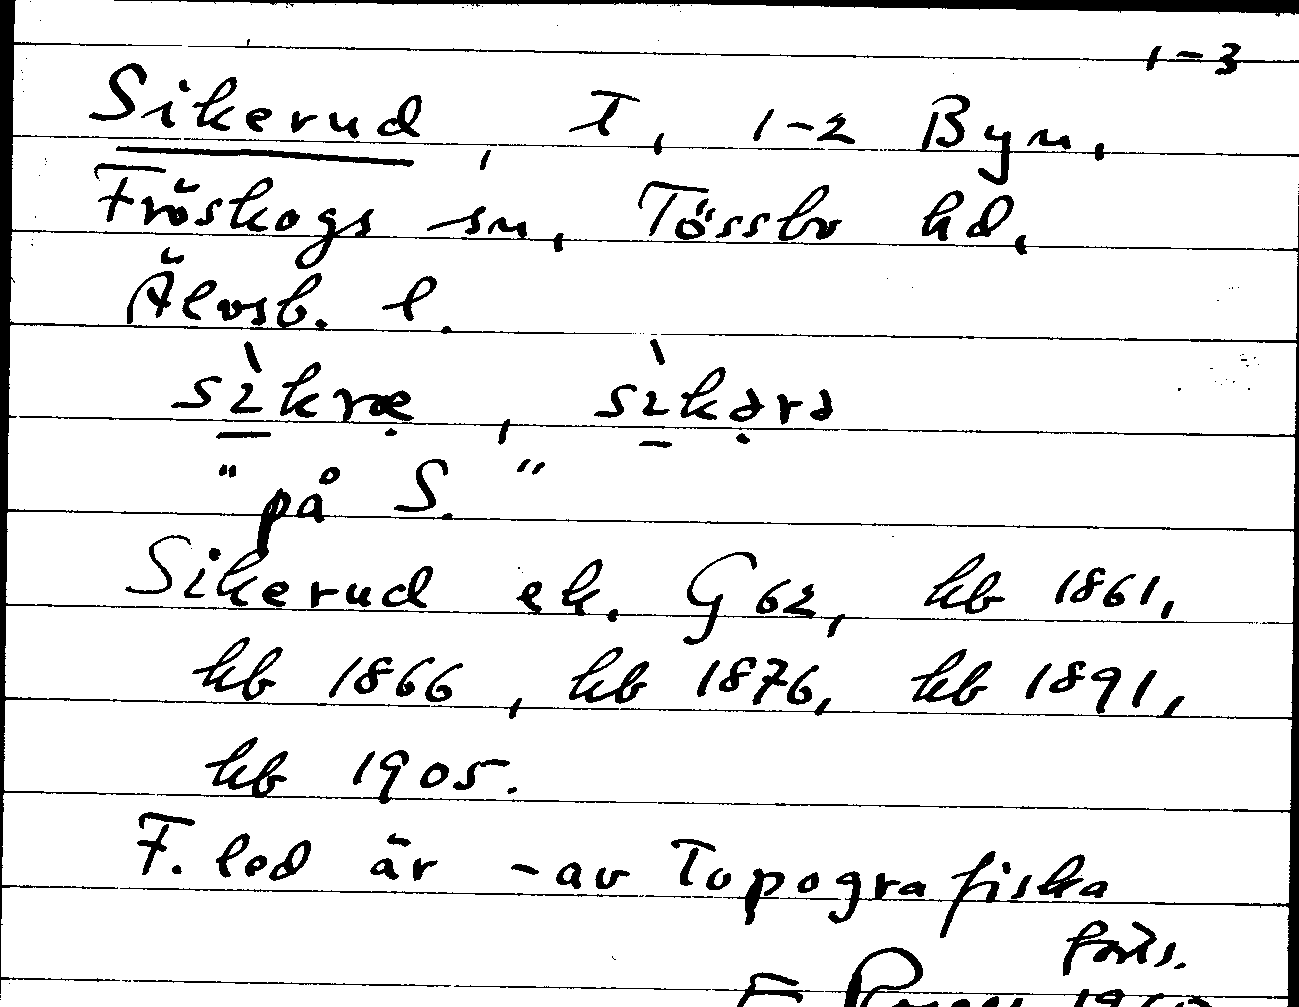 1-3
Sikerud, T, 1-2 Byn,
Fröskogs sn, Tössbo hd,
Älvsb. l.
sìkræ̣, sìkə̣rə
"på S."
Sikerud ek. G 62, kb 1861,
kb 1866, kb 1876, kb 1891,
kb 1905.
F. led är - av topografiska
forts.